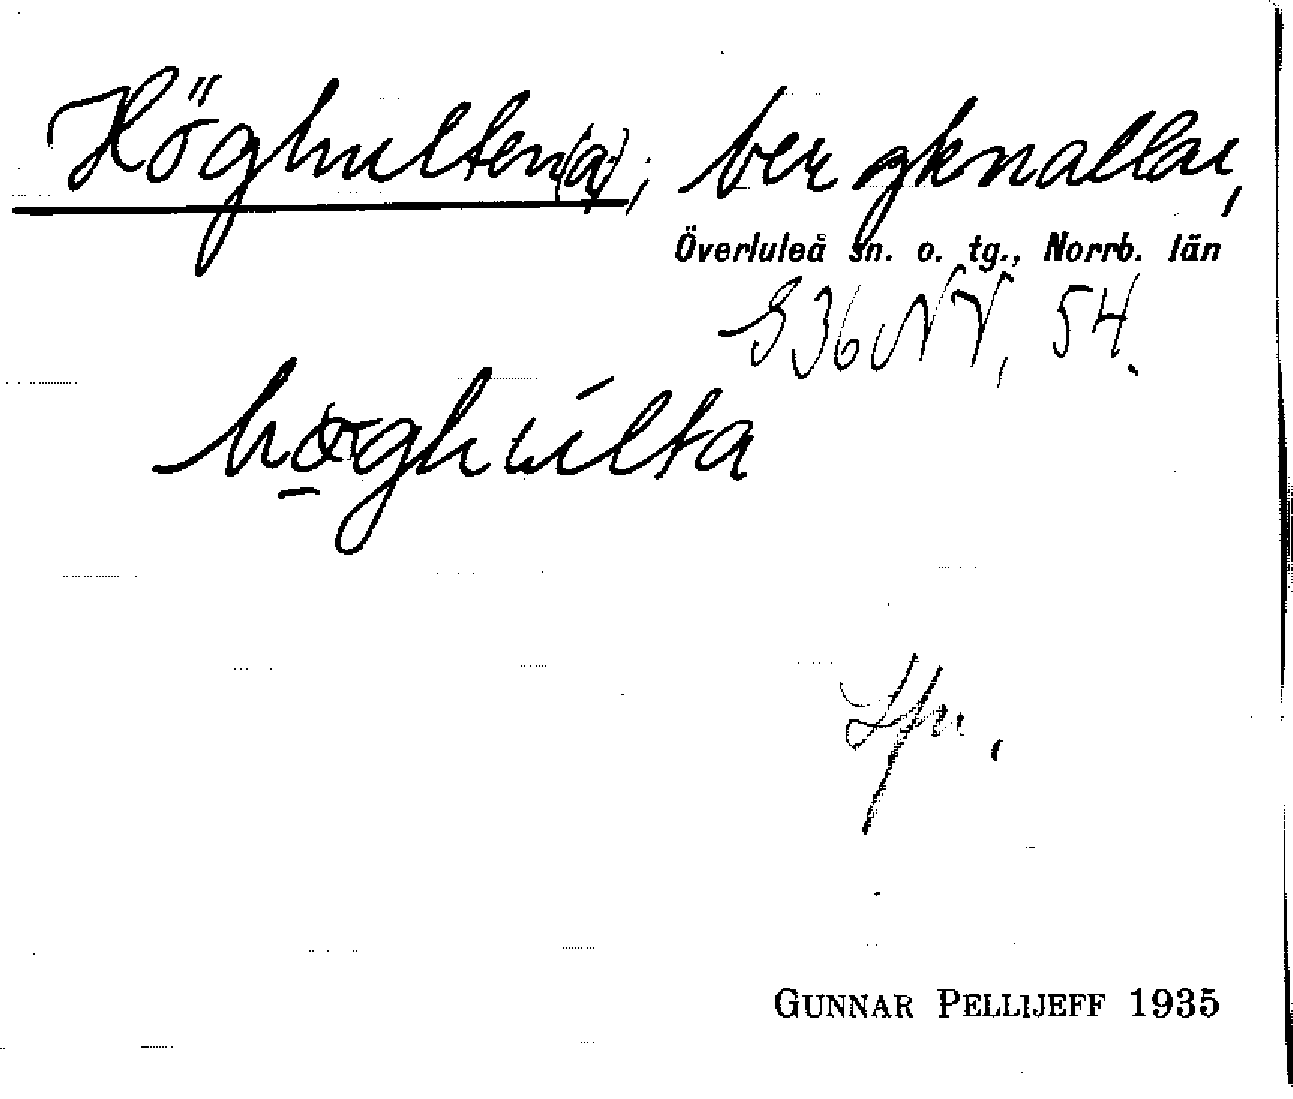 Höghulten(a), bergknallar,
Överluleå sn. o. tg., Norrb. län
S36NV, 54.
høghulta
GUNNAR PELLIJEFF 1935